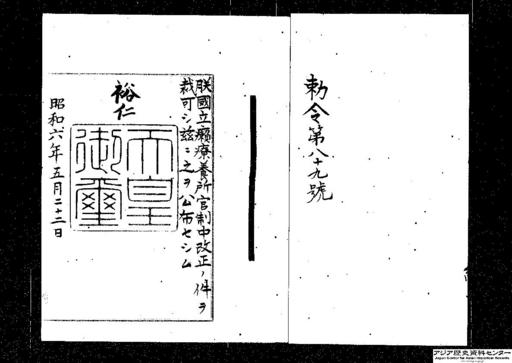 勅令第八十九號
朕國立癩療養所官制中改正ノ件ヲ
裁可シ玆ニ之ヲ公布セシム
裕仁
天皇
御璽
昭和六年五月二十二日
アジア歴史資料センター
Japan Center for Asian Historical Records